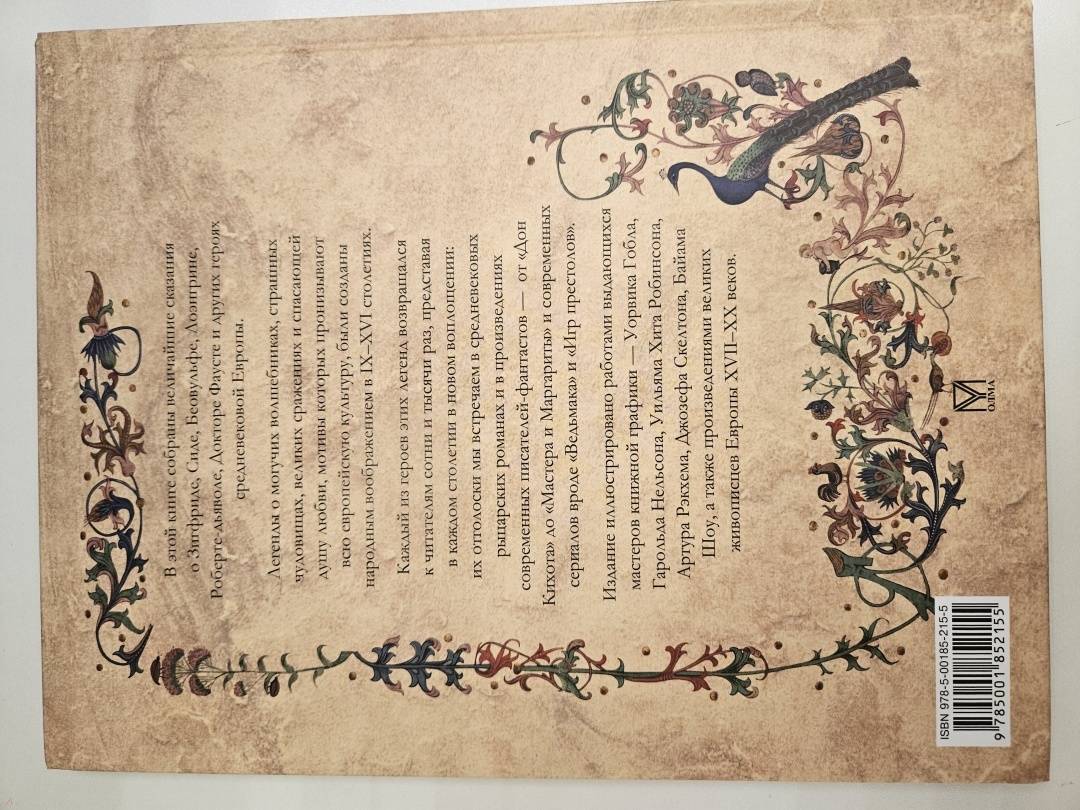 В этой книге собраны величайшие сказания
о Зигфриде, Сиде, Беовульфе, Лоэнгрине,
Роберте-дьяволе, Докторе Фаусте и других героях
средневековой Европы.
Легенды о могучих волшебниках, странных
чудовищах, великих сражениях и спасающей
душу любви, мотивы которых пронизывают
всю европейскую культуру, были созданы
народным воображением в IX–XVI столетиях.
Каждый из героев этих легенд возвращался
к читателям сотни и тысячи раз, представая
в каждом столетии в новом воплощении:
их отголоски мы встречаем в средневековых
рыцарских романах и в произведениях
современных писателей-фантастов — от «Дон
Кихота» до «Мастера и Маргариты» и современных
сериалов вроде «Ведьмака» и «Игр престолов».
Издание иллюстрировано работами выдающихся
мастеров книжной графики — Уорвика Гобла,
Гарольда Нельсона, Уильяма Хита Робинсона,
Артура Рэкхема, Джозефа Скелтона, Байама
Шоу, а также произведениями великих
живописцев Европы XVII–XX веков.
ОЛМА
ISBN 978-5-00185-215-5
9 785001 852155